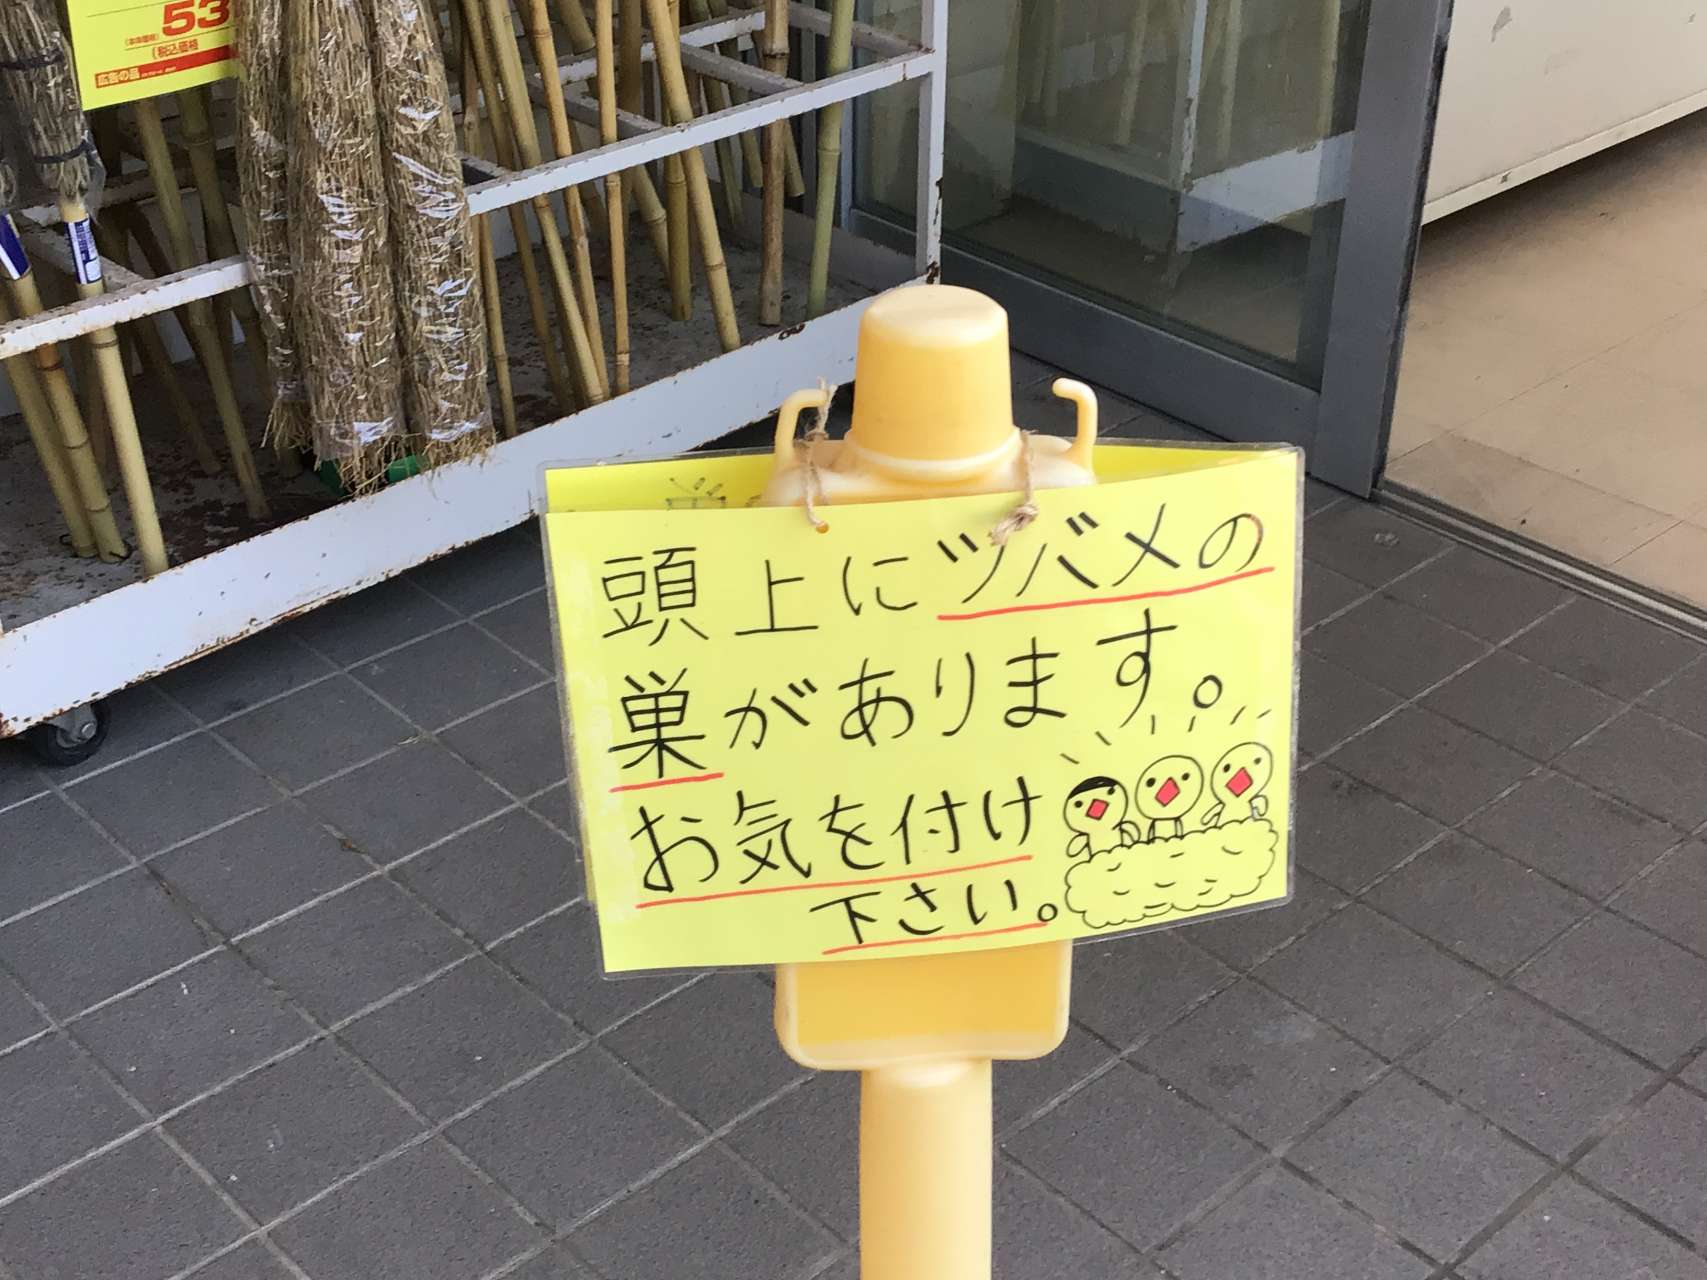 53
(本体価格)
(税込価格
広告の品
頭上にツバメの
巣があります。
お気を付け
下さい。